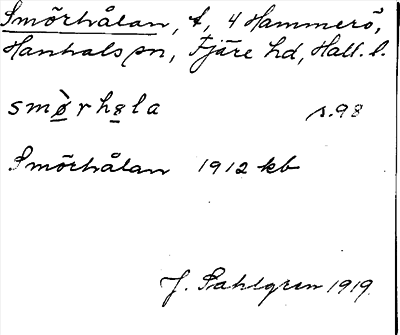 Smörhålan, t, 4 Hammerö,
Hanhals sn, Fjäre hd, Hall. l.
smø̀rhala s.98
Smörhålan 1912 kb
J. Sahlgren 1919